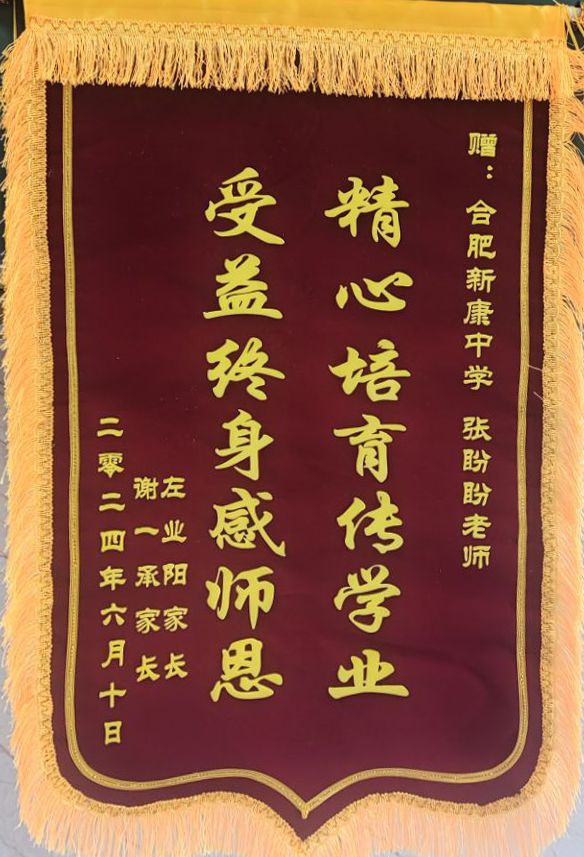 赠：合肥新康中学 张盼盼老师
精心培育传学业
受益终身感师恩
左业阳家长
谢一承家长
二零二四年六月十日